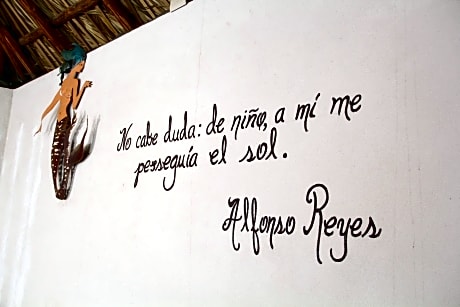 No cabe duda: de niño, a mí me
perseguía el sol.
Alfonso Reyes